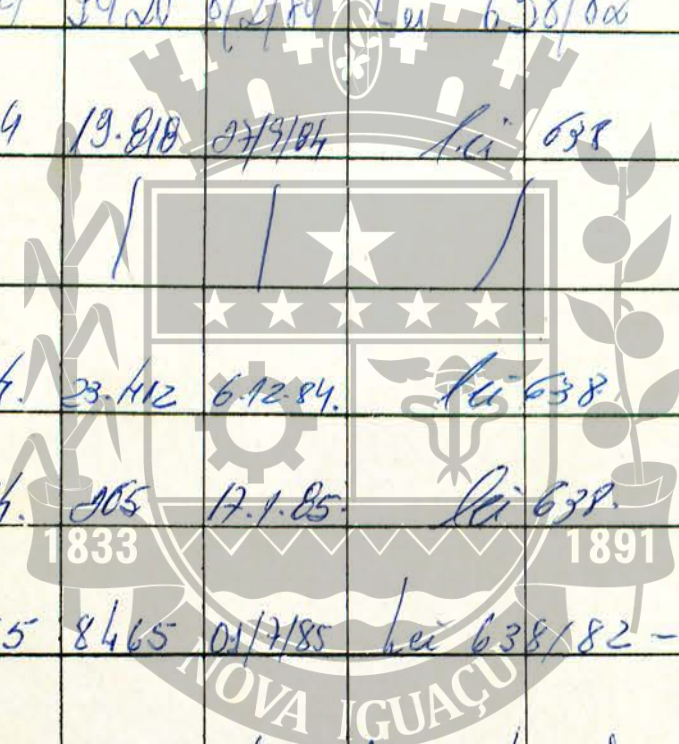 4 19.818 27/9/84 lei 638
/ / /
4. 23.412 6.12.84. lei 638.
4. 205 17.1.85. lei 638.
1833 1891
5 8465 01/7/85 Lei 638/82 -
NOVA IGUAÇU